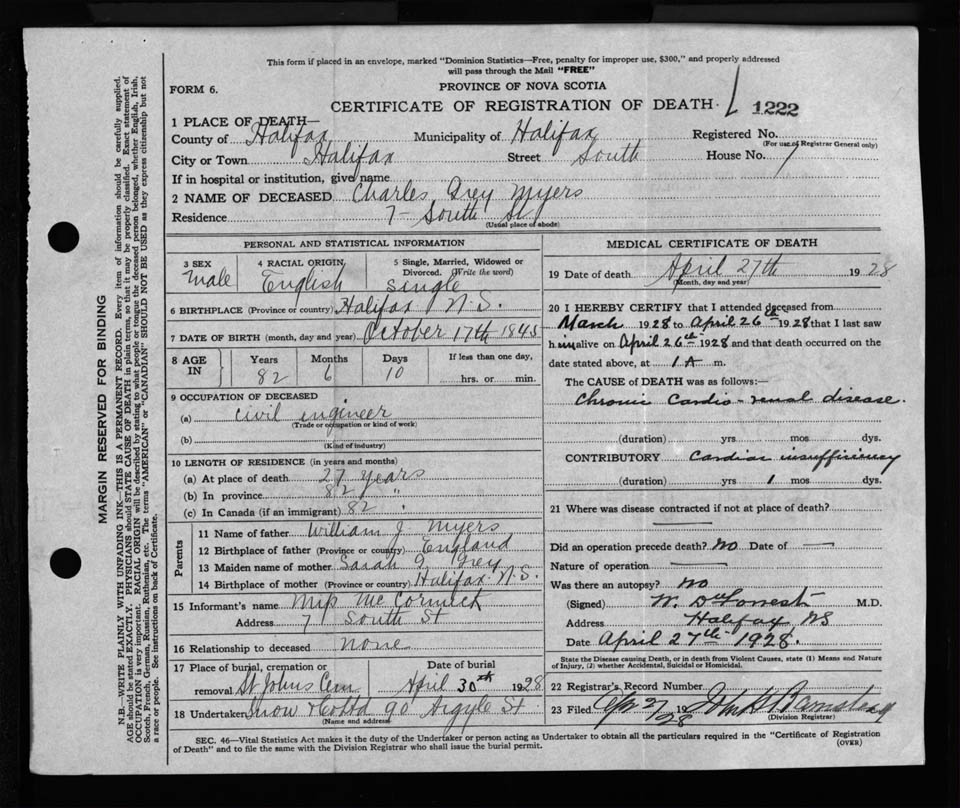 This form if placed in an envelope, marked "Dominion Statistics—Free, penalty for improper use, $300," and properly addressed
will pass through the Mail "FREE"
FORM 6.
PROVINCE OF NOVA SCOTIA
CERTIFICATE OF REGISTRATION OF DEATH. L 1222
1 PLACE OF DEATH—
County of Halifax Municipality of Halifax Registered No.
(For use of Registrar General only)
City or Town Halifax Street South House No. 7
If in hospital or institution, give name
2 NAME OF DECEASED Charles Grey Myers
Residence 7 - South St
(Usual place of abode)
PERSONAL AND STATISTICAL INFORMATION
3 SEX 4 RACIAL ORIGIN 5 Single, Married, Widowed or
Divorced. (Write the word)
Male English Single
6 BIRTHPLACE (Province or country) Halifax N.S.
7 DATE OF BIRTH (month, day and year) October 17th 1845
8 AGE IN Years Months Days If less than one day,
82 6 10 hrs. or min.
9 OCCUPATION OF DECEASED
(a) Civil engineer
(Trade or occupation or kind of work)
(b)
(Kind of industry)
10 LENGTH OF RESIDENCE (in years and months)
(a) At place of death 27 years
(b) In province 82 "
(c) In Canada (if an immigrant) 82 "
Parents
11 Name of father William J. Myers
12 Birthplace of father (Province or country) England
13 Maiden name of mother Sarah Grey
14 Birthplace of mother (Province or country) Halifax N.S.
15 Informant's name Miss McCormick
Address 7 South St
16 Relationship to deceased none
17 Place of burial, cremation or Date of burial
removal St Johns Cem April 30th 1928
18 Undertaker Snow & Co Ltd 90 Argyle St
(Name and address)
MEDICAL CERTIFICATE OF DEATH
19 Date of death April 27th 1928
(Month, day and year)
20 I HEREBY CERTIFY that I attended deceased from
March 1928 to April 26th 1928 that I last saw
h im alive on April 26th 1928 and that death occurred on the
date stated above, at 1 A m.
The CAUSE of DEATH was as follows:—
Chronic Cardio-renal disease.
(duration) yrs. mos. dys.
CONTRIBUTORY Cardiac insufficiency
(duration) yrs. 1 mos. dys.
21 Where was disease contracted if not at place of death?
—
Did an operation precede death? No Date of —
Nature of operation —
Was there an autopsy? No
(Signed) W. D. Forrest M.D.
Address Halifax NS
Date April 27th 1928.
State the Disease causing Death, or in death from Violent Causes, state (1) Means and Nature
of Injury, (2) whether Accidental, Suicidal or Homicidal.
22 Registrar's Record Number
23 Filed Apr 27 1928 John H Barnstead
(Division Registrar)
SEC. 46—Vital Statistics Act makes it the duty of the Undertaker or person acting as Undertaker to obtain all the particulars required in the "Certificate of Registration
of Death" and to file the same with the Division Registrar who shall issue the burial permit.
(OVER)
MARGIN RESERVED FOR BINDING
N.B.—WRITE PLAINLY WITH UNFADING INK—THIS IS A PERMANENT RECORD. Every item of information should be carefully supplied.
AGE should be stated EXACTLY. PHYSICIANS should STATE CAUSE OF DEATH in plain terms, so that it may be properly classified. Exact statement of
OCCUPATION is very important. RACIAL ORIGIN will be described by stating to what people or tongue the deceased person belonged, whether English, Irish,
Scotch, French, German, Russian, Ruthenian, etc. The terms "AMERICAN" or "CANADIAN" SHOULD NOT BE USED as they express citizenship but not
a race or people. See instructions on back of Certificate.